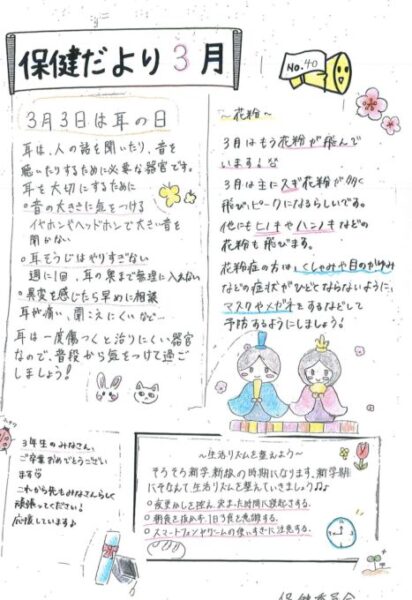 保健だより3月
No.40
3月3日は耳の日
耳は、人の話を聞いたり、音を
聴いたりするために必要な器官です。
耳を大切にするために
○音の大きさに気をつける
イヤホンやヘッドホンで大きい音を
聞かない
○耳そうじはやりすぎない
週に1回、耳の奥まで無理に入れない
○異変を感じたら早めに相談
耳が痛い、聞こえにくいなど…
耳は一度傷つくと治りにくい器官
なので、普段から気をつけて過ご
しましょう!
～花粉～
3月はもう花粉が飛んで
います!
3月は主にスギ花粉が多く
飛び、ピークになるらしいです。
他にもヒノキやハンノキなどの
花粉も飛びます。
花粉症の方は、くしゃみや目のかゆみ
などの症状がひどくならないように、
マスクやメガネをするなどして
予防するようにしましょう!
3年生のみなさん、
ご卒業おめでとうござい
ます
これから先もみなさんらしく
頑張ってください!
応援しています♪
～生活リズムを整えよう～
そろそろ新学期の時期になります。新学期
にそなえて生活リズムを整えていきましょう♪♪
○夜更かしを控え、決まった時間に寝起きする。
○朝食を抜かず1日3食を意識する。
○スマートフォンやゲームの使いすぎに注意する。
保健委員会